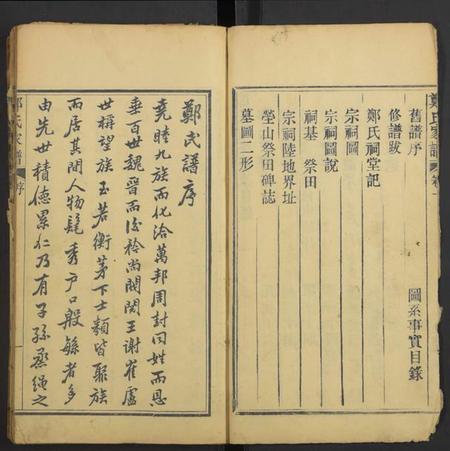 鄭氏家譜 卷一
舊譜序 圖系事實目錄
修譜跋
鄭氏祠堂記
宗祠圖
宗祠圖說
祠基 祭田
宗祠陸地界址
塋山祭田碑誌
墓圖二形
鄭氏譜序
堯睦九族而化洽萬邦周封同姓而恩
垂百世魏晉而後衿尚閥閱王謝崔盧
世稱望族至若衡茅下士類皆聚族
而居其間人物髦秀戶口殷繁者多
由先世積德累仁乃有子孫烝繩之
鄭氏家譜 序